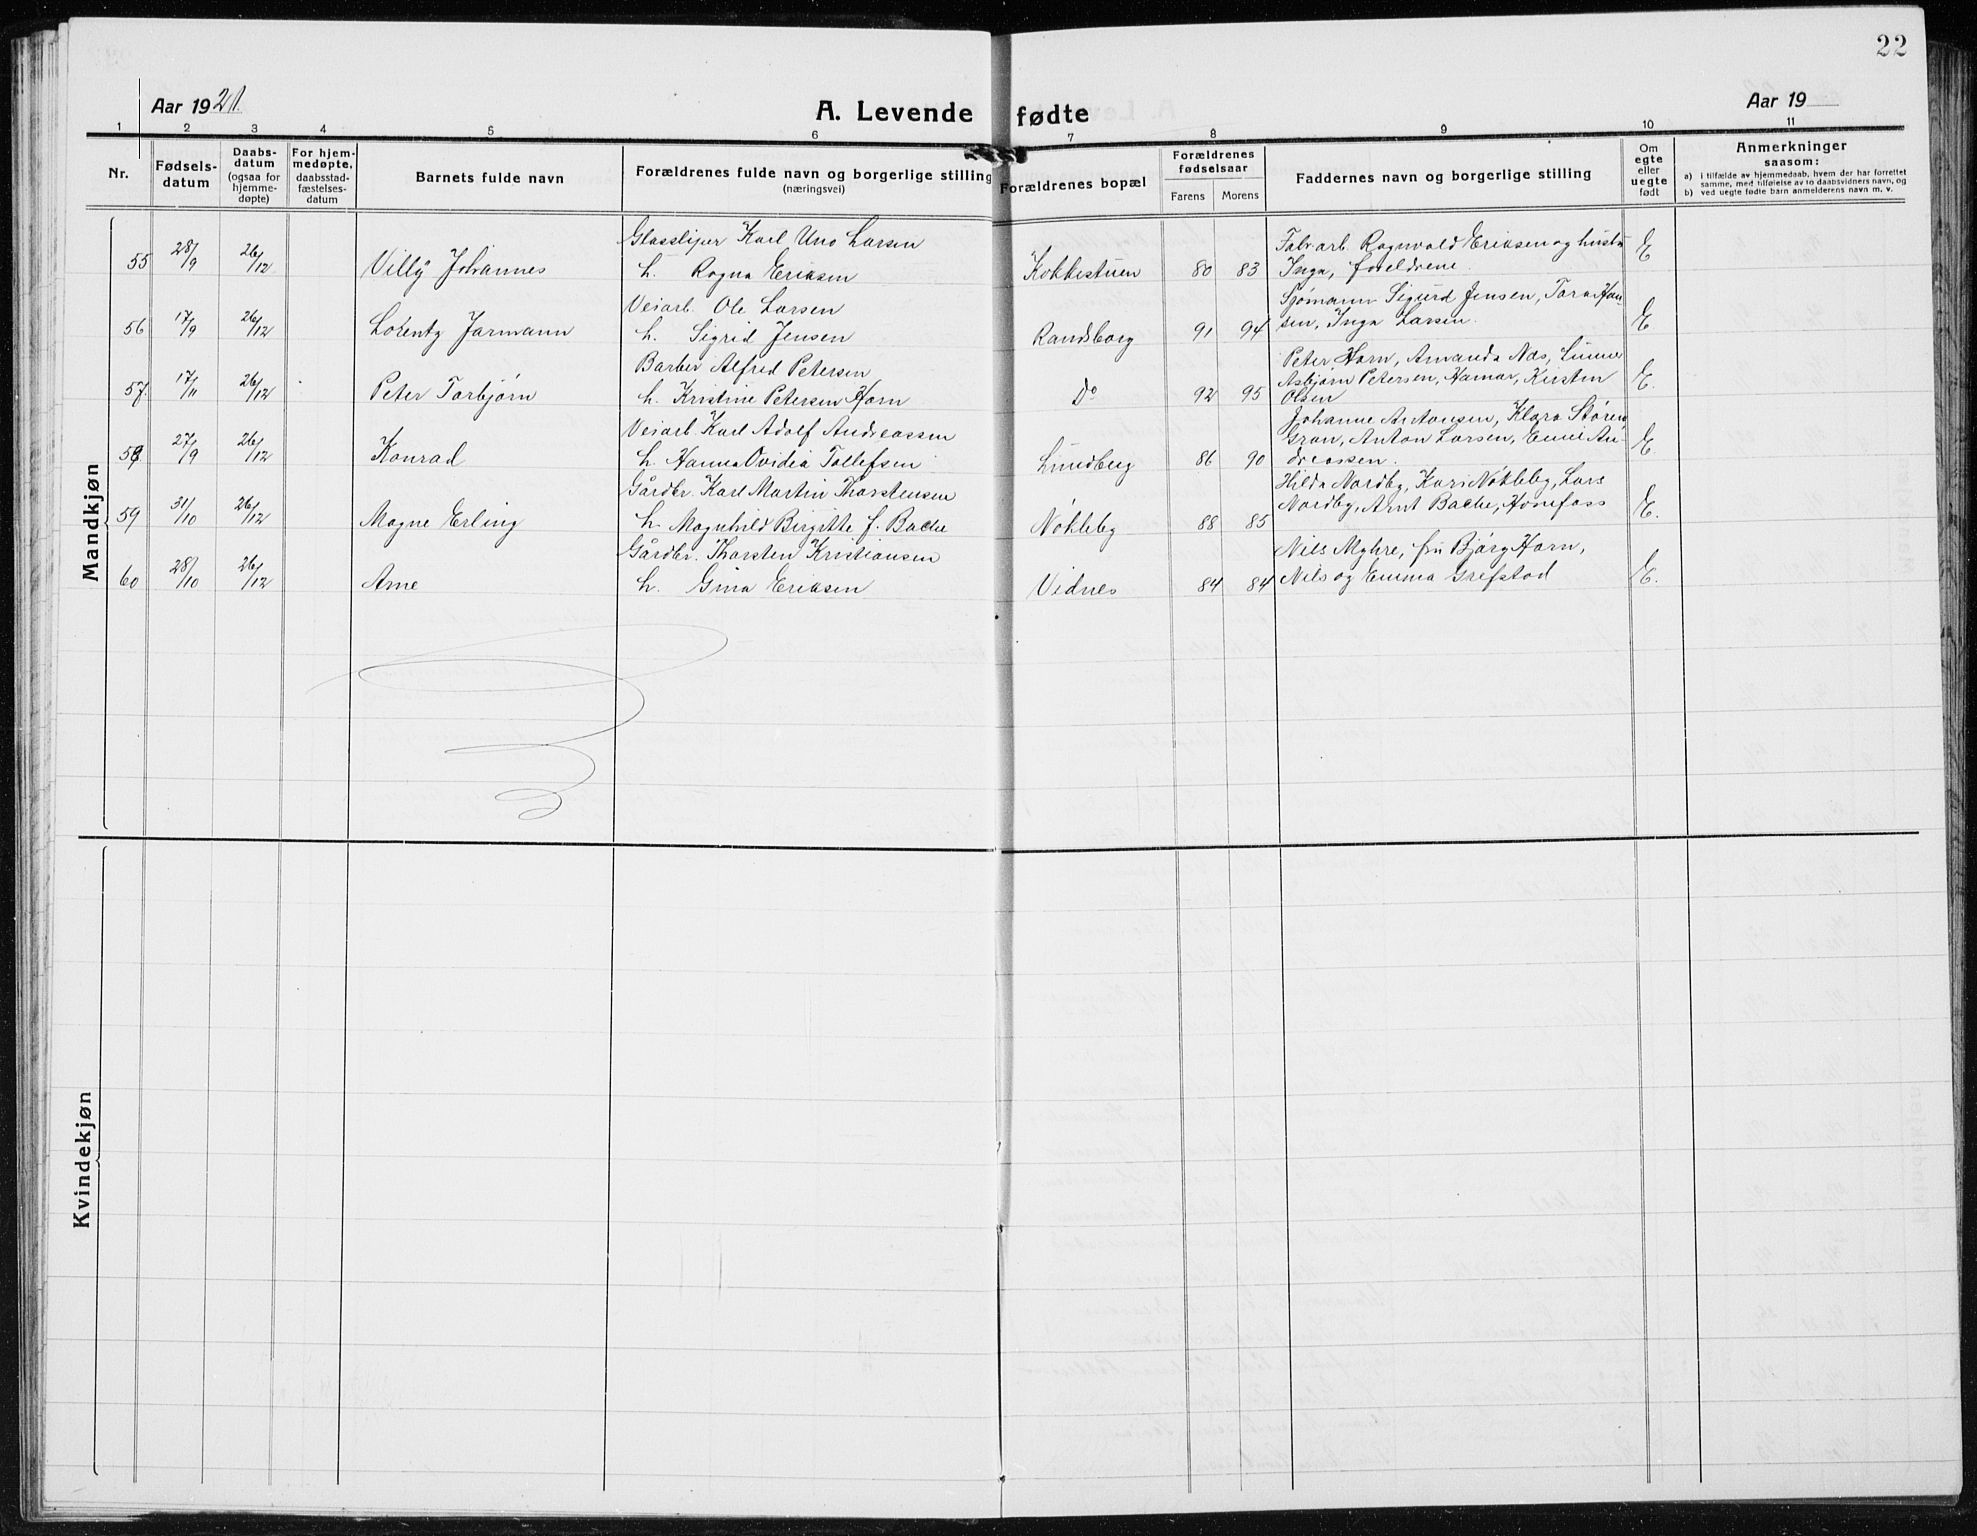 22
Aar 1921.
A. Levende fødte
Aar 19
1 2 3 4 5 6 7 8 9 10 11
Nr.
Fødsels-
datum
Daabs-
datum
(ogsaa for
hjemme-
døpte)
For hjem-
medøpte,
daabsstad-
fæstelses-
datum
Barnets fulde navn
Forældrenes fulde navn og borgerlige stilling
(næringsvei)
Forældrenes bopæl
Forældrenes
fødselsaar
Farens Morens
Faddernes navn og borgerlige stilling
Om
egte
eller
uegte
født
Anmerkninger
saasom:
a) i tilfælde av hjemmedaab, hvem der har forrettet
samme, med tilføielse av to daabsvidners navn, og
b) ved uegte fødte barn anmelderens navn m. v.
Mandkjøn
Glassliper Karl Uno Larsen
Fabr.arb. Ragnvald Eriksen og hustru
55 28/9 26/12 Villy Johannes h. Ragna Eriksen Kokkestuen 80 83 Inga, foreldrene. E
Veiarb. Ole Larsen
Sjømann Sigurd Jensen, Tara Han-
56 17/9 26/12 Lorentz Jarmann h. Sigrid Jensen Randsborg 91 94 sen, Inga Larsen. E
Barber Alfred Petersen
Peter Horn, Amanda Næs, Lunner
57. 17/11 26/12 Peter Torbjørn h. Kristine Petersen Horn Do 92 95 Asbjørn Petersen, Hamar, Kirsten E.
Olsen
Veiarb. Karl Adolf Andreassen
Johanne Antonsen, Klara Støren
58. 27/9 26/12 Konrad h. Hanna Ovidia Tollefsen Lundberg 86 90 Gran, Anton Larsen, Emil An- E
dreassen.
Gårdbr. Karl Martin Thorstensen
Hilda Nordby, Kari Nøkleby, Lars
59 31/10 26/12 Magne Erling h. Magnhild Birgitte f. Bache Nøkleby 88 85 Nordby, Arnt Bache, Hønefoss E.
Gårdbr. Thorsten Kristiansen
Nils Myhre, fru Bjørg Horn,
60 28/10 26/12 Arne h. Gina Eriksen Vidnes 84 84 Nils og Emma Grefstad E.
Kvindekjøn